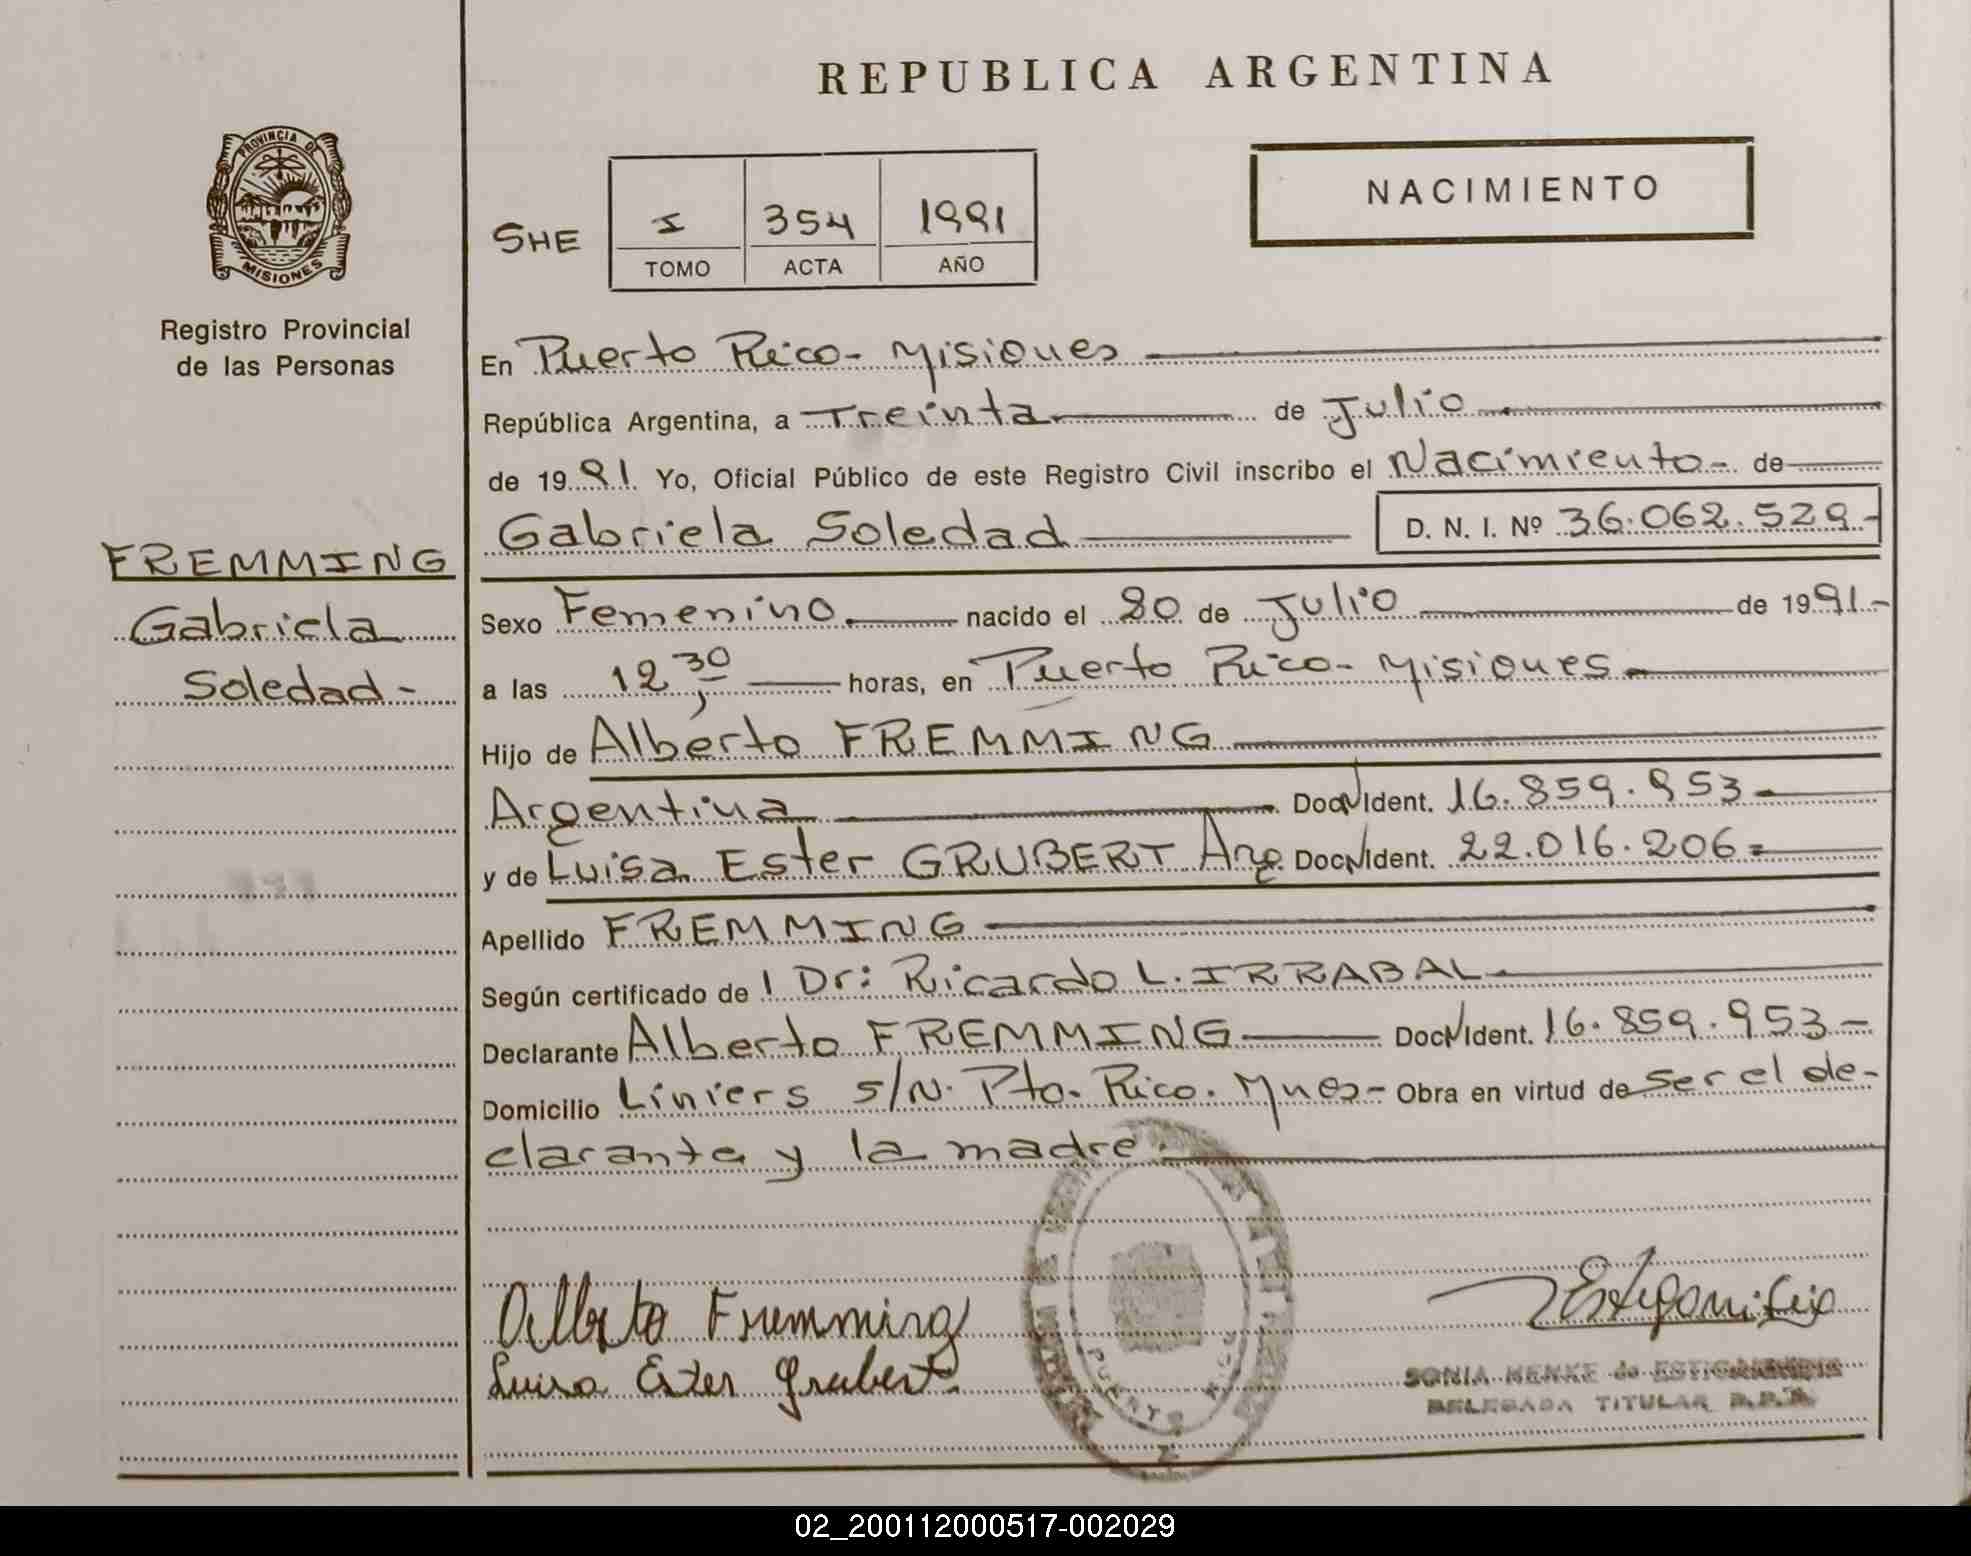 REPUBLICA ARGENTINA
PROVINCIA DE
MISIONES
Registro Provincial
de las Personas
SHE
I 354 1991
TOMO ACTA AÑO
NACIMIENTO
En Puerto Rico - Misiones
República Argentina, a Treinta de Julio
de 1991 Yo, Oficial Público de este Registro Civil inscribo el Nacimiento - de
Gabriela Soledad D. N. I. Nº 36.062.529-
FREMMING
Gabriela
Soledad -
Sexo Femenino nacido el 20 de Julio de 1991-
a las 12,30 horas, en Puerto Rico - Misiones
Hijo de Alberto FREMMING
Argentina Doc. N Ident. 16.859.953-
y de Luisa Ester GRUBERT Arg. Doc. N Ident. 22.016.206=
Apellido FREMMING
Según certificado de l Dr: Ricardo L. IRRABAL
Declarante Alberto FREMMING Doc. N Ident. 16.859.953-
Domicilio Liniers s/N. Pto. Rico. Mnes- Obra en virtud de ser el de-
clarante y la madre.
Alberto Fremming
Luisa Ester Grubert
PUERTO RICO
SONIA HENKE de ESTIGARRIBIA
DELEGADA TITULAR R.P.P.
02_200112000517-002029